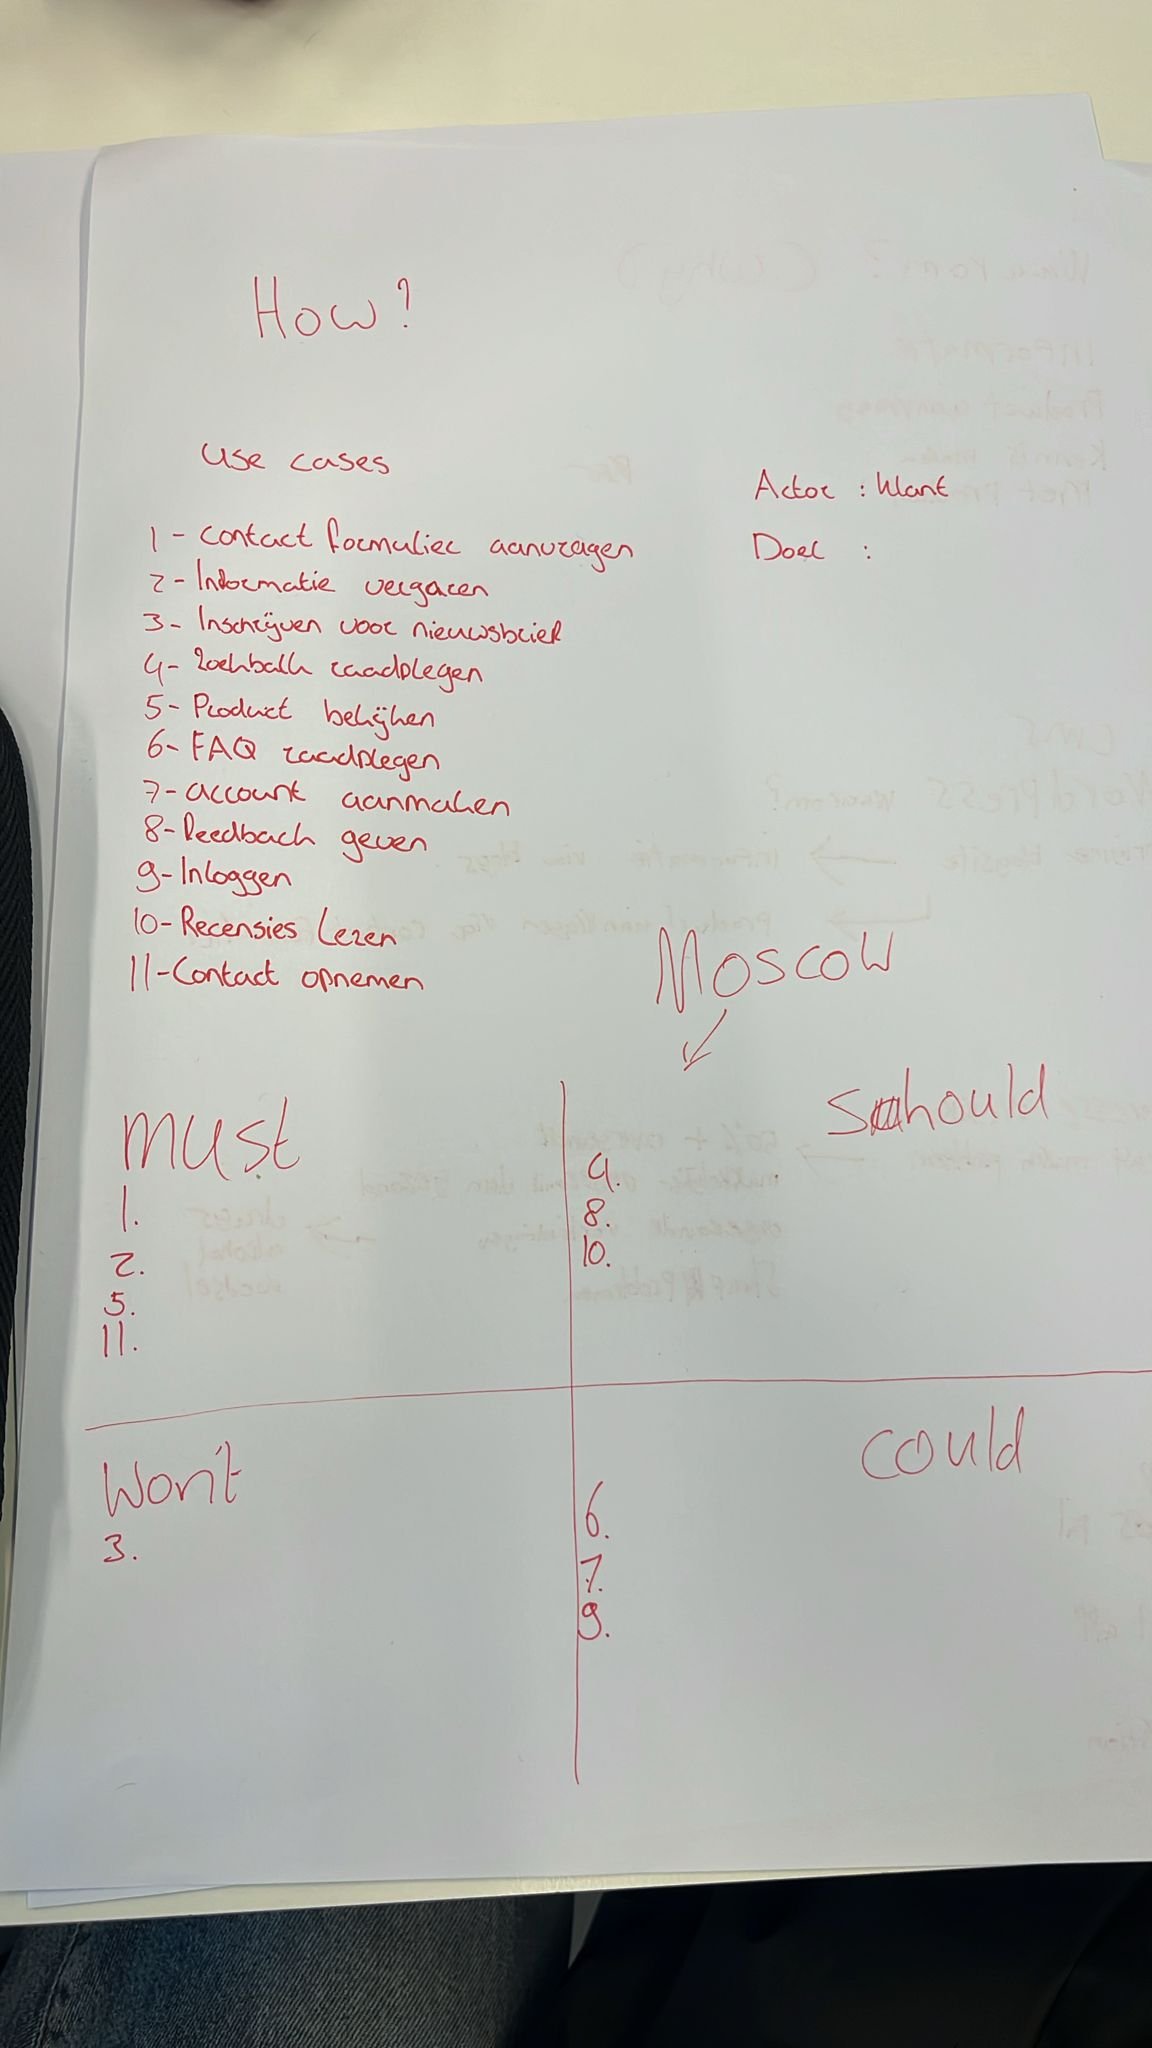 How?
use cases
Actor : klant
Doel :
1 - contact formulier aanvragen
2 - Informatie vergaren
3 - Inschrijven voor nieuwsbrief
4 - Zoekbalk raadplegen
5 - Product bekijken
6 - FAQ raadplegen
7 - account aanmaken
8 - Feedback geven
9 - Inloggen
10 - Recensies lezen
11 - Contact opnemen
MoSCoW
must
1.
2.
5.
11.
Should
4.
8.
10.
Won't
3.
could
6.
7.
9.